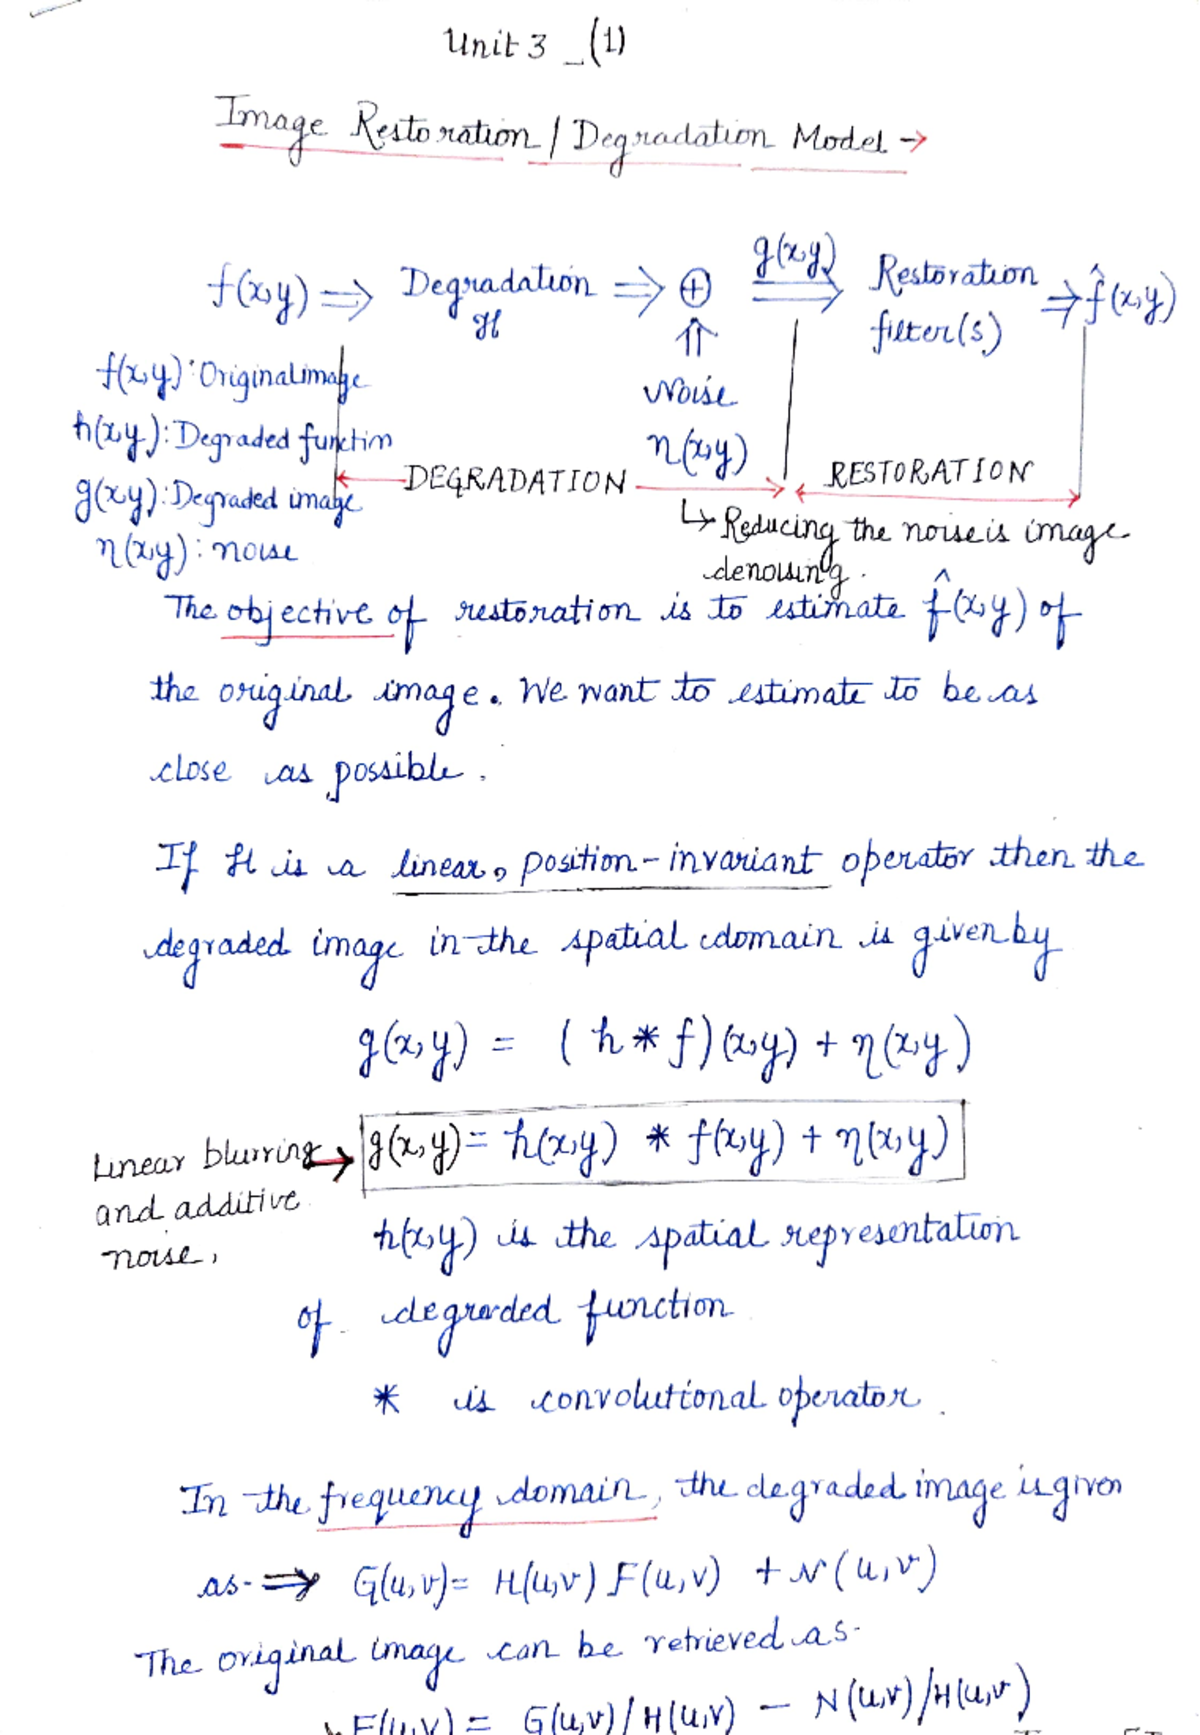 Unit 3 _(1)
Image Restoration / Degradation Model →
f(x,y) ⇒ Degradation ⇒ ⊕ g(x,y) ⇒ Restoration ⇒ f̂(x,y)
H ⇑ filter(s)
f(x,y): Original image Noise
h(x,y): Degraded function η(x,y)
← DEGRADATION → ← RESTORATION →
g(x,y): Degraded image ↳ Reducing the noise is image
η(x,y): noise denoising.
The objective of restoration is to estimate f̂(x,y) of
the original image. We want to estimate to be as
close as possible.
If H is a linear, position-invariant operator then the
degraded image in the spatial domain is given by
g(x,y) = (h * f)(x,y) + η(x,y)
Linear blurring → g(x,y) = h(x,y) * f(x,y) + η(x,y)
and additive
noise,
h(x,y) is the spatial representation
of degraded function
* is convolutional operator.
In the frequency domain, the degraded image is given
as- ⇒ G(u,v) = H(u,v) F(u,v) + N(u,v)
The original image can be retrieved as-
F(u,v) = G(u,v)/H(u,v) - N(u,v)/H(u,v)